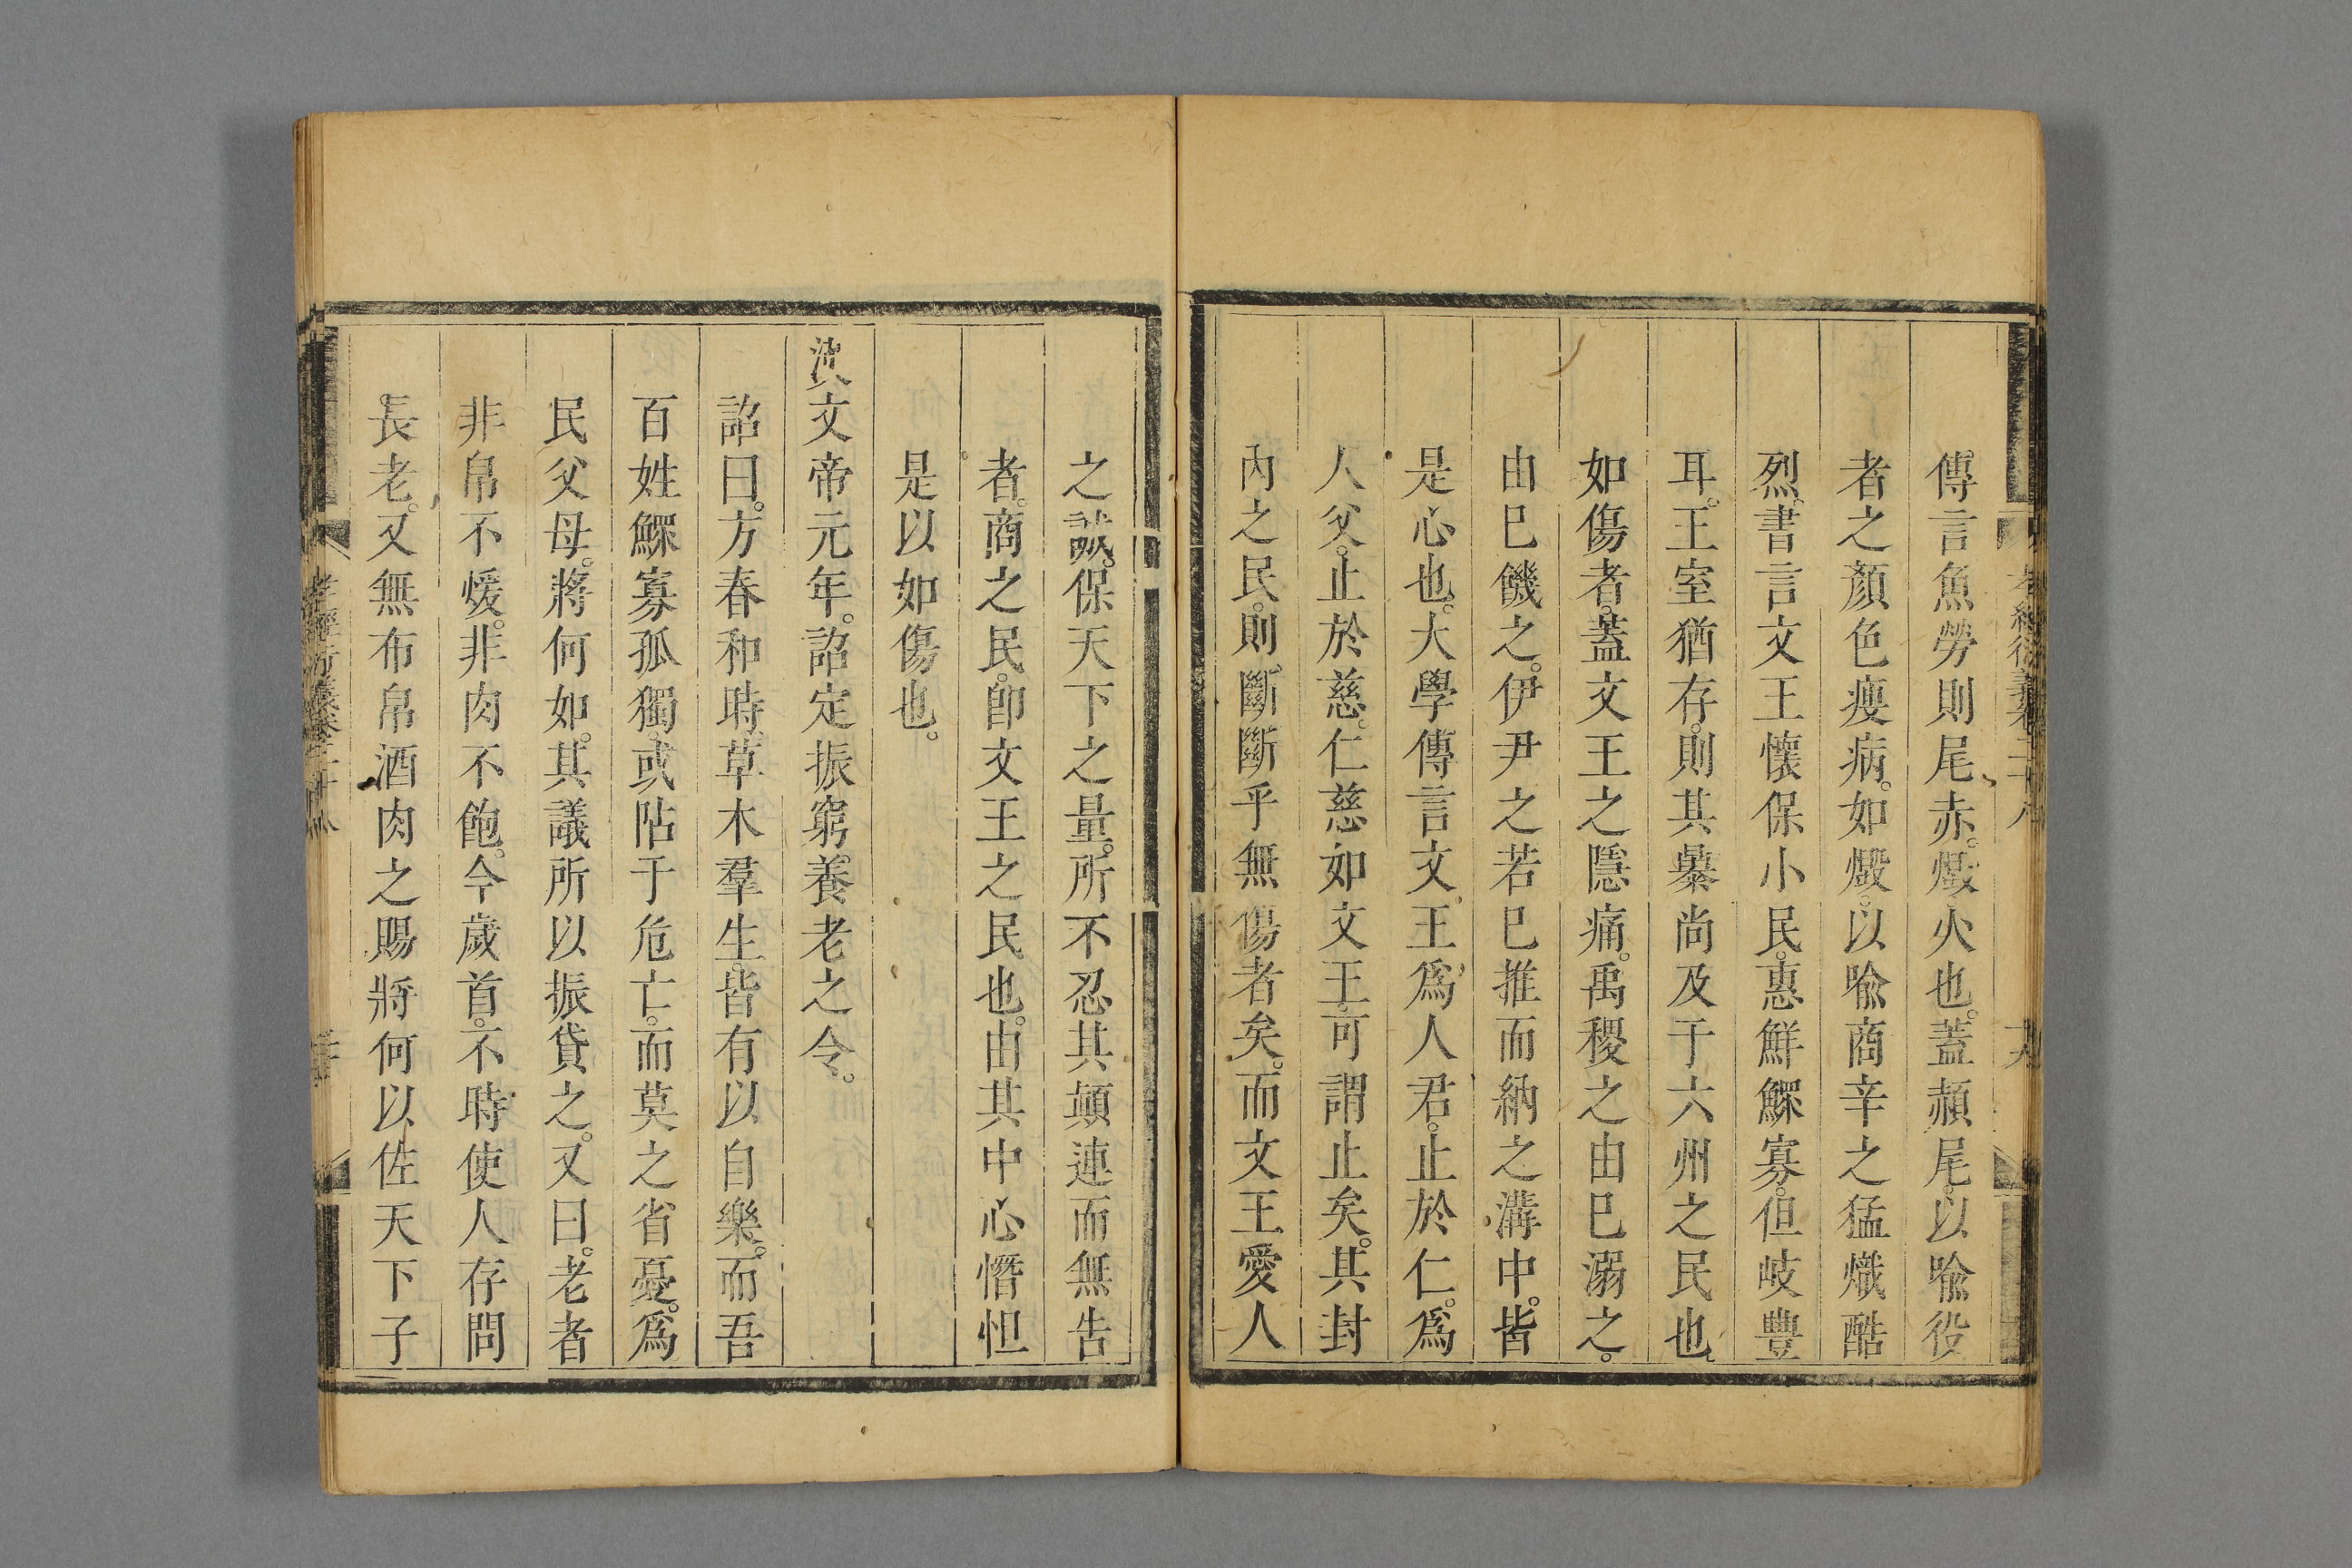 傳言魚勞則尾赤。燬火也。蓋赬尾。以喻役
者之顏色瘦病。如燬。以喻商辛之猛熾酷
烈。書言文王懷保小民。惠鮮鰥寡。但岐豐
耳。王室猶存。則其暴尚及于六州之民也。
如傷者。蓋文王之隱痛。禹稷之由巳溺之。
由巳饑之。伊尹之若巳推而納之溝中。皆
是心也。大學傳言文王爲人君。止於仁。爲
人父。止於慈。仁慈如文王。可謂止矣。其封
內之民。則斷斷乎無傷者矣。而文王愛人
之誠。保天下之量。所不忍其顛連而無告
者。商之民。卽文王之民也。由其中心憯怛
是以如傷也。
漢文帝元年。詔定振窮養老之令。
詔曰。方春和時。草木羣生。皆有以自樂。而吾
百姓鰥寡孤獨。或阽于危亡。而莫之省憂。爲
民父母。將何如。其議所以振貸之。又曰。老者
非帛不煖。非肉不飽。今歲首。不時使人存問
長老。又無布帛酒肉之賜將何以佐天下子
孝經衍義卷二十八